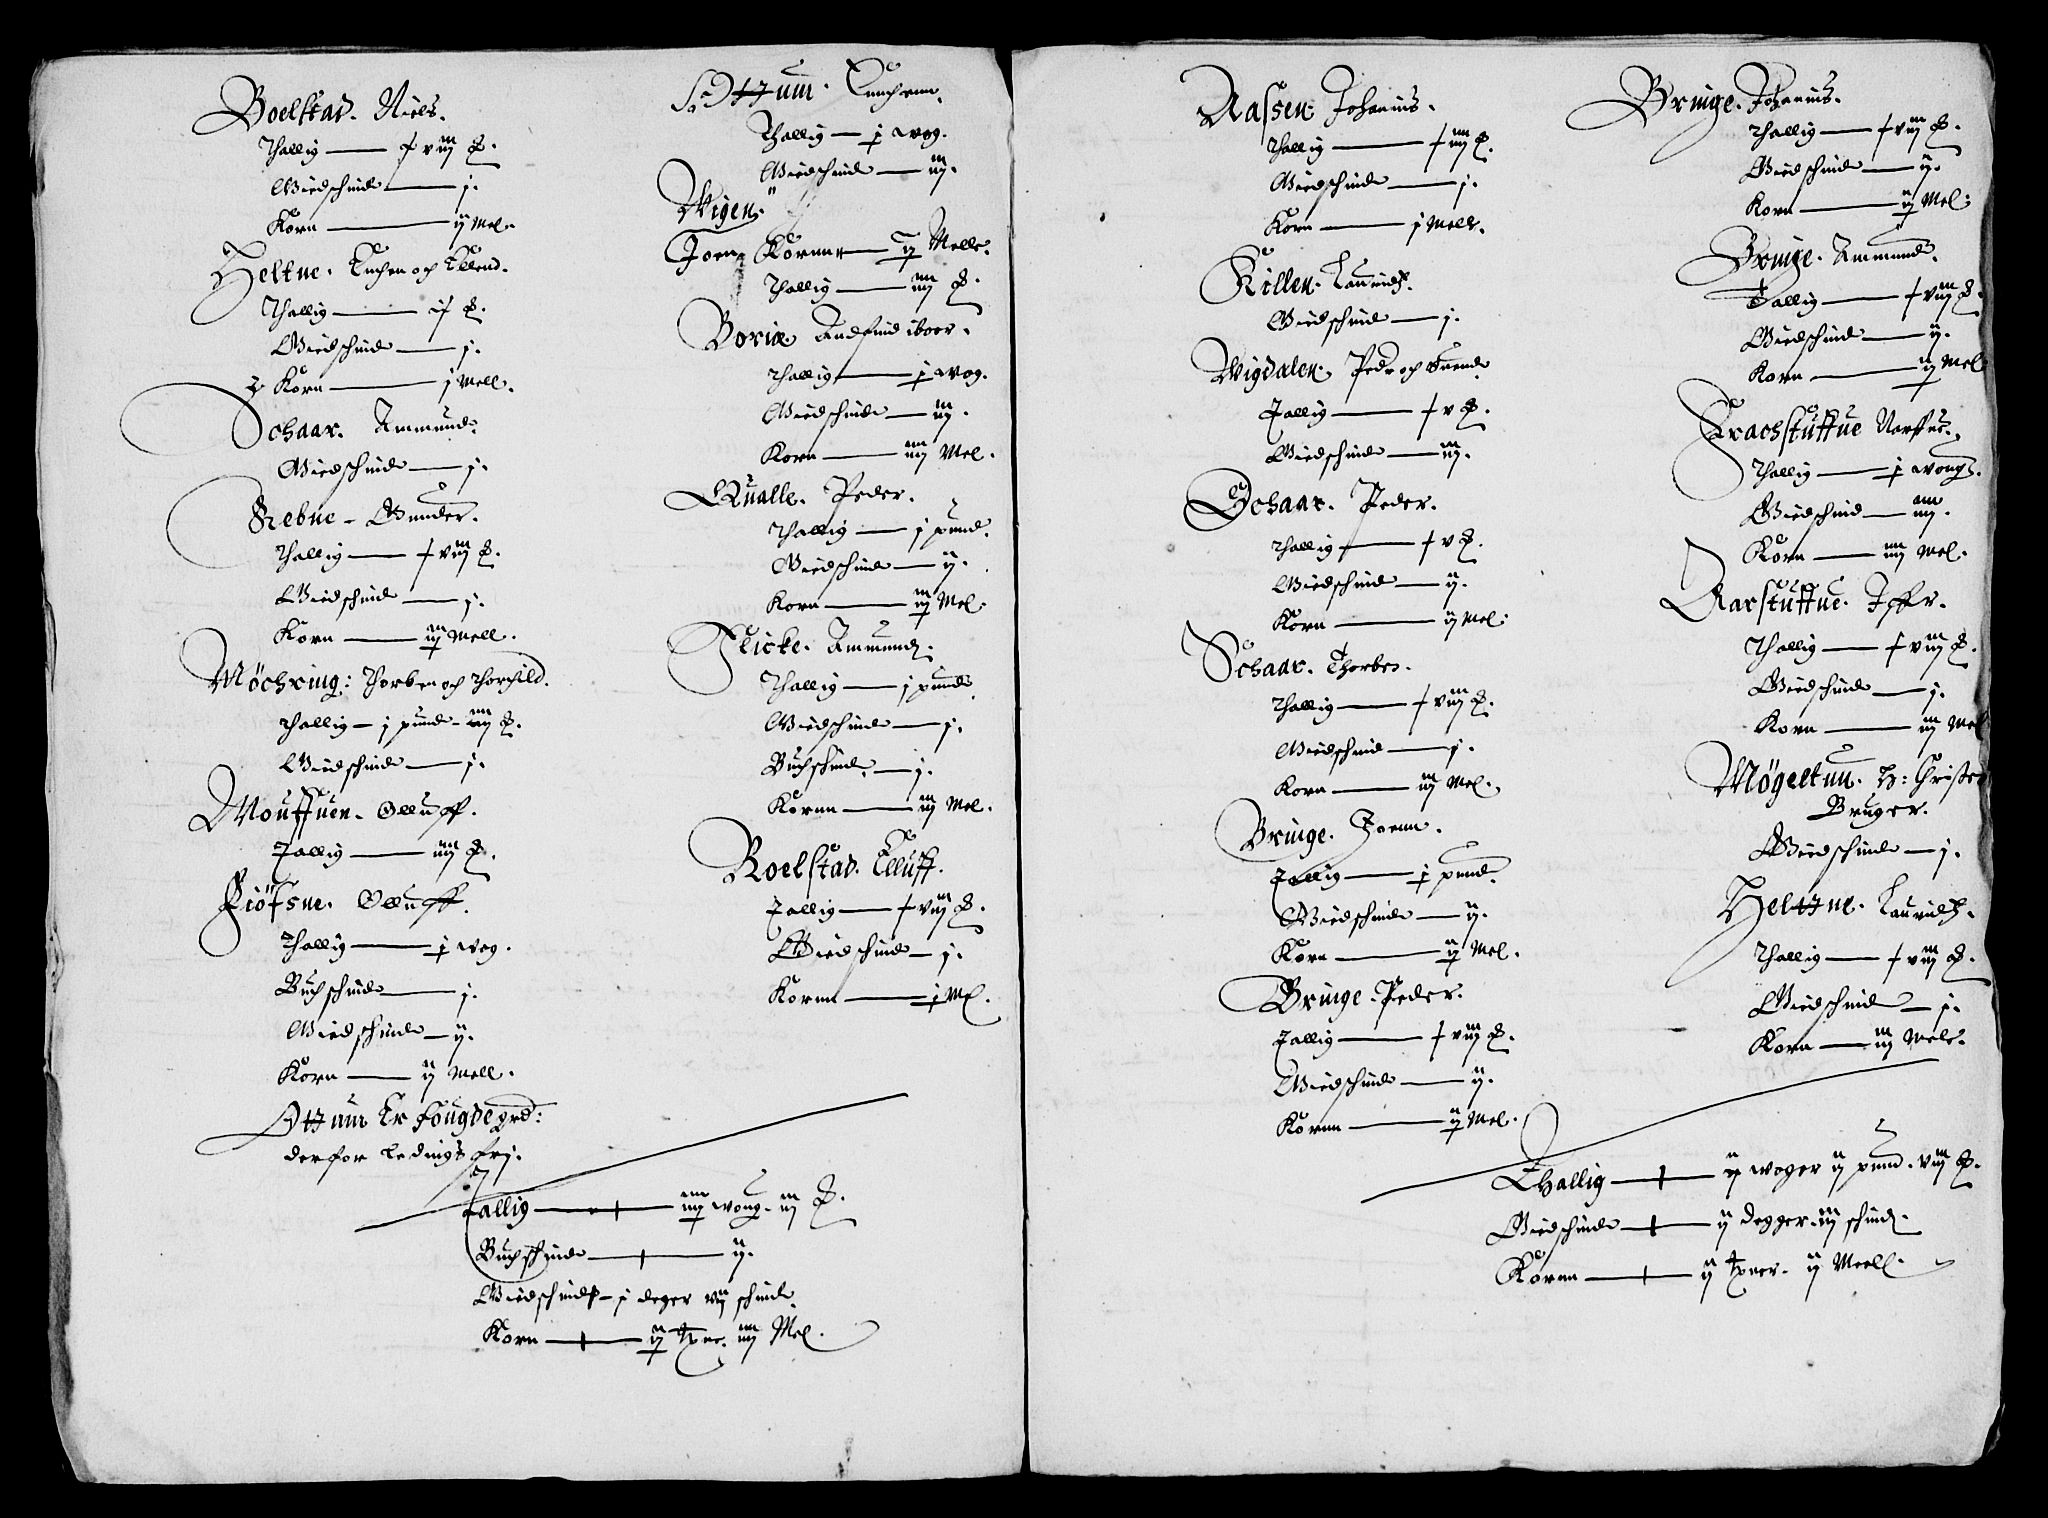 Boelstad. Niels.
Thallig — f viij ℔.
Giedschind — j.
Korn — ij Mel.
Heltne. och Ellend.
Thallig — ℔.
Giedschind — j.
Korn — j Mell.
Schaar. Ammund.
Giedschind — j.
Rebne. Gunder.
Thallig — f viij ℔.
Giedschind — j.
Korn — iij Mell.
Möchring: Torben och Thorchild.
Thallig — j pund — iiij ℔.
Giedschind — j.
Mouffuen. Olluff.
Tallig — iiij ℔.
Fiöfsne. Olluff.
Thallig — j wog.
Buchschind — j.
Giedschind — ij.
Korn — ij Mell.
Ottum Er fougdegrd:
derfor Ledings frj.
Tallig — iiij woug. iij ℔.
Buchschind — ij.
Giedschind — j deger vij schind.
Korn — ij tyner. iiij Mel.
S. Ottum.
Thallig — j wog.
Giedschind — iij.
Wigen.
Joen Kornn — ij Melle.
Thallig — iiij ℔.
Boriæ. Andfind iboer.
Thallig — j wog.
Giedschind — iij.
Korn — iiij Mel.
Qualle. Peder.
Thallig — j pund.
Giedschind — ij.
Korn — iij Mel.
Flicke. Ammund.
Thallig — j pund.
Giedschind — j.
Buchschind. — j.
Kornn — iij Mel.
Roelstad. Elluff.
Tallig — f viij ℔.
Giedschind — j.
Kornn — j Ml.
Aassen. Johannis.
Thallig — f iiij ℔.
Giedschind — j.
Korn — j Mell.
Killen. Lauridz.
Giedschind — j.
Wigdalen. Peder och Suend.
Tallig — f v ℔.
Giedschind — iij.
Schaar. Peder.
Thallig — f v ℔.
Giedschind — ij.
Korn — ij Mel.
Schaar. Thorber.
Thallig — f viij ℔.
Giedschind — j.
Korn — iij Mel.
Bringe. Joenn.
Tallig — j pund.
Giedschind — ij.
Korn — ij Mel.
Bringe. Peder.
Tallig — f viij ℔.
Giedschind — ij.
Kornn — ij Mel.
Bringe. Johannis.
Thallig — f viij ℔.
Giedschind — ij.
Korn — ij Mel.
Bringe. Ammund.
Tallig — f viij ℔.
Giedschind — ij.
Korn — ij Mel
Krachstuffue
Thallig — j woug.
Giedschind — iiij.
Korn — iiij Mel.
Aarstuffue. Iffr.
Thallig — f viij ℔.
Giedschind — j.
Korn — iij Mel
Mögeltun. H: Christen
Bruger.
Giedschind — j.
Heltne. Lauridz.
Thallig — f viij ℔.
Giedschind — j.
Korn — iij Mele.
Thallig — ij woger ij pund. viij ℔.
Giedschind — ij degger. iij schind.
Kornn — ij tyner. ij Meell.